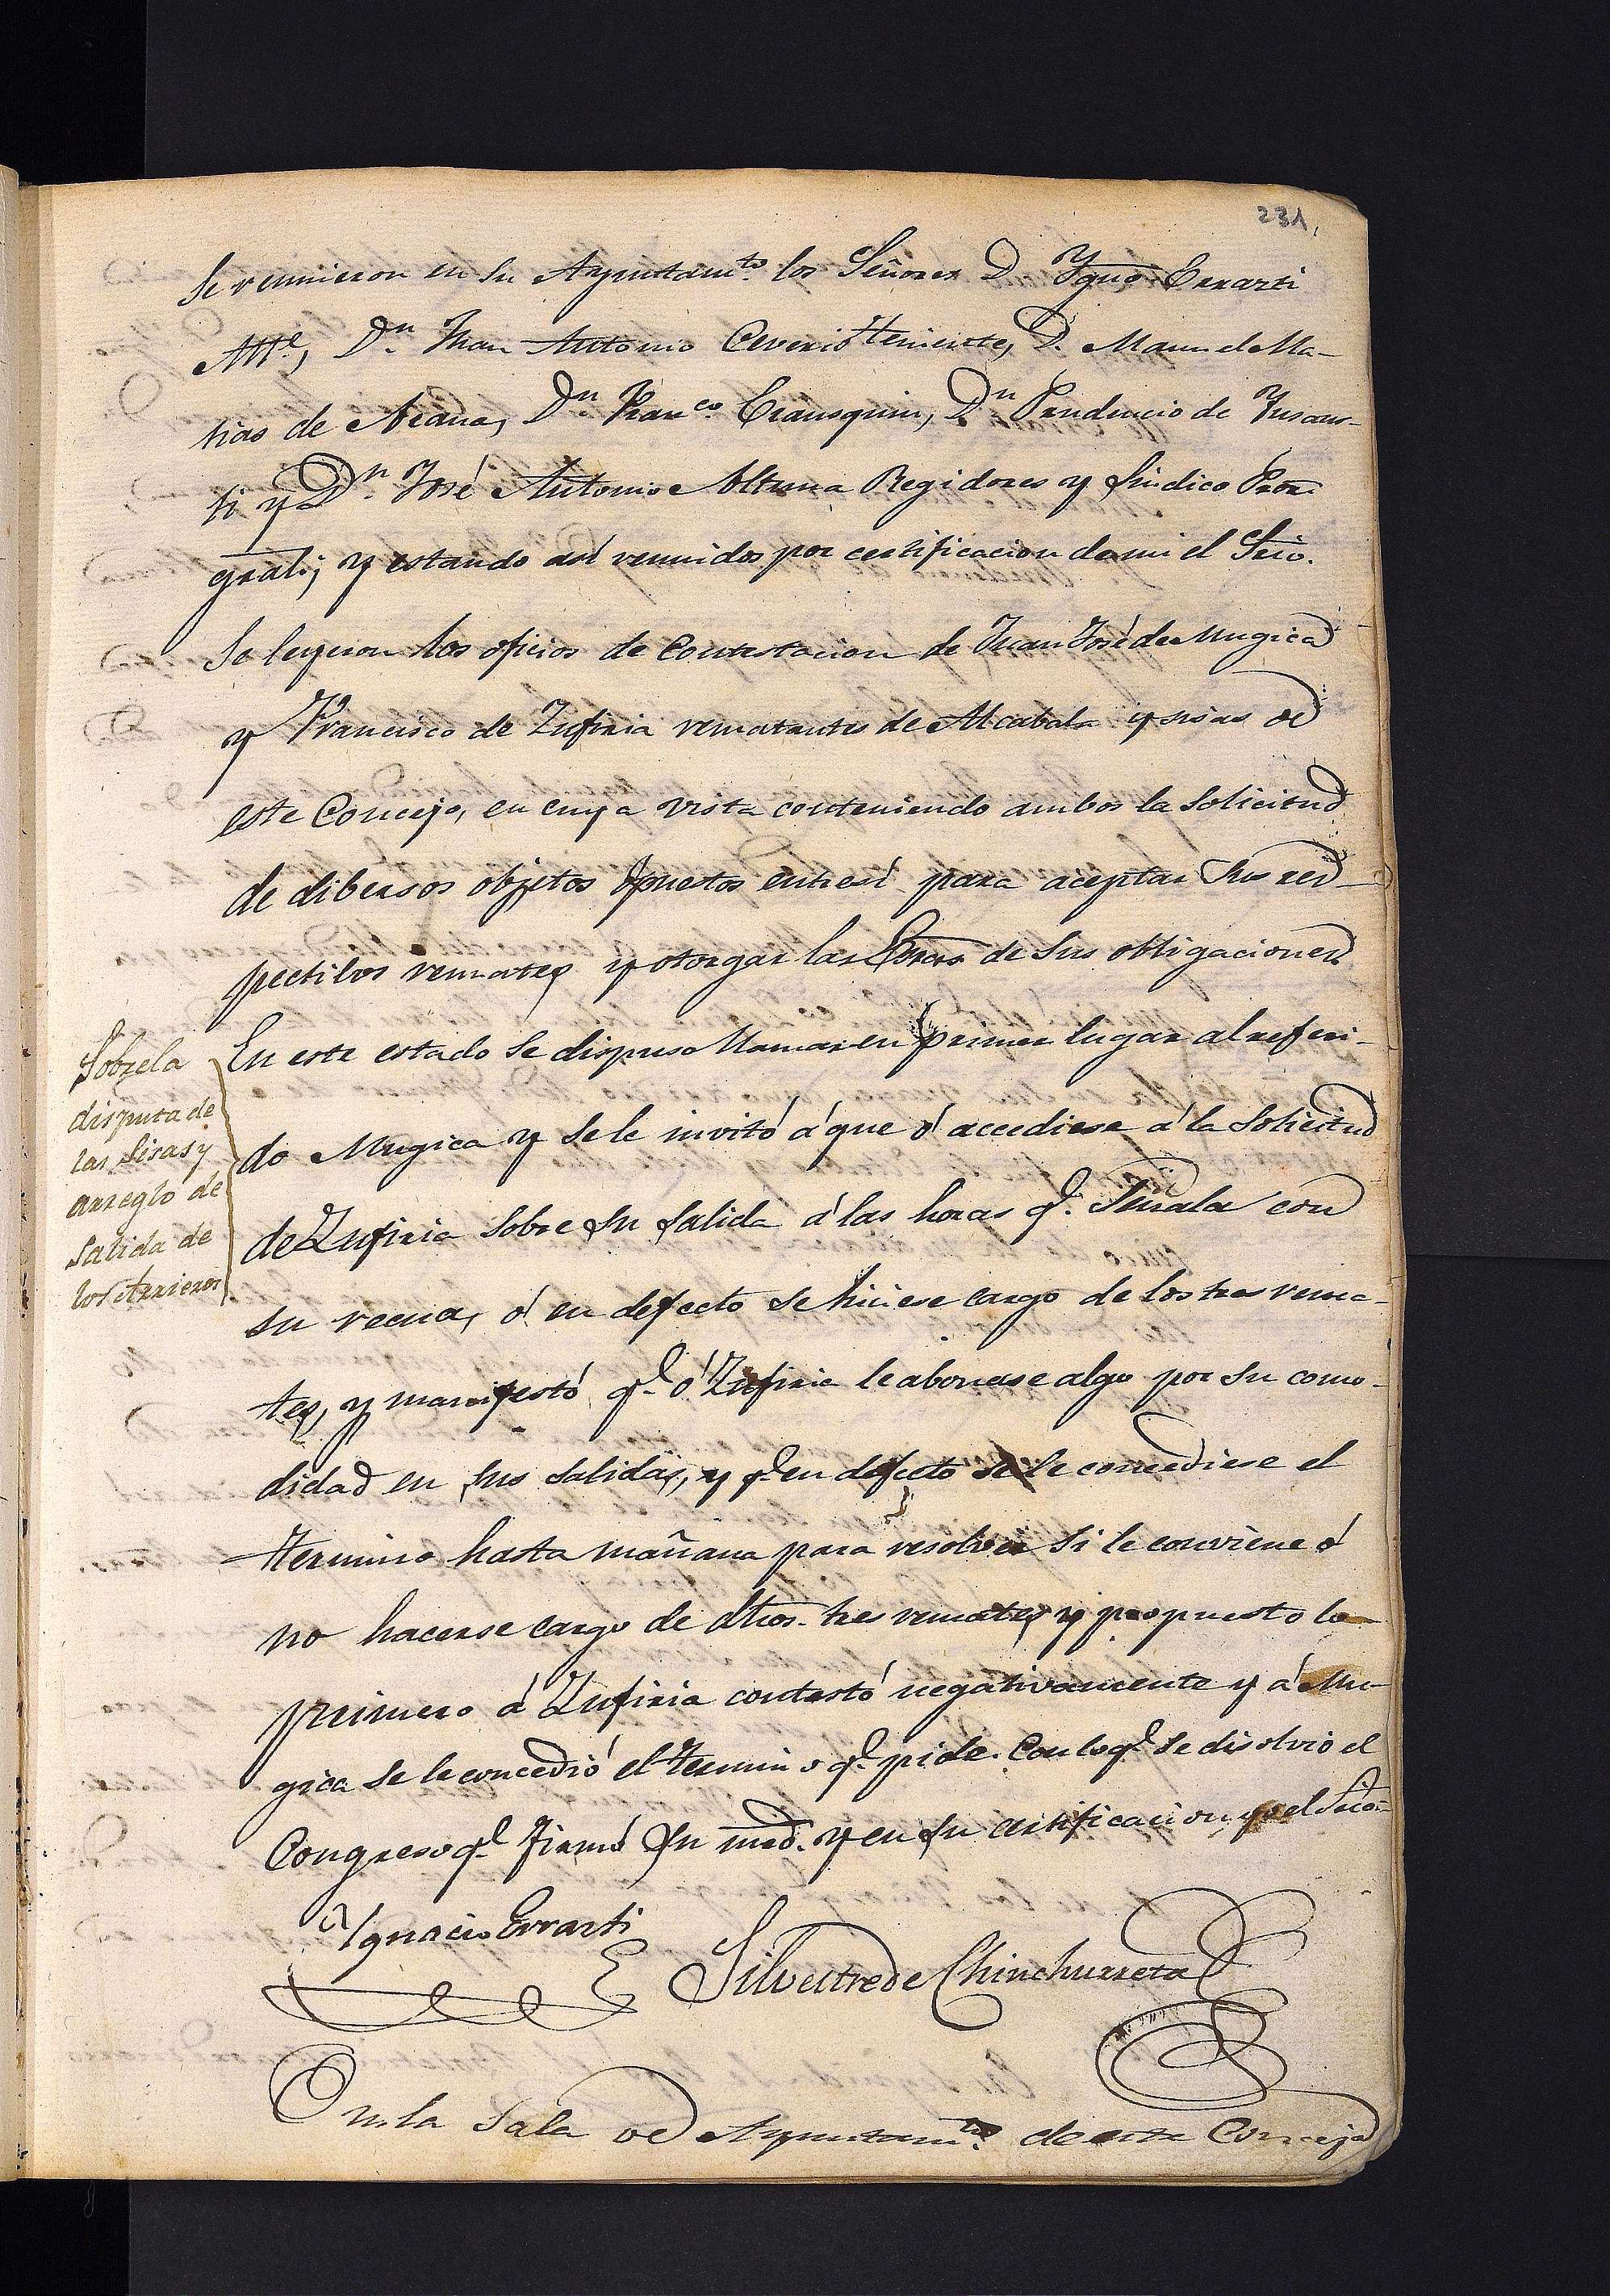 231
Se reunieron en su Ayuntamto. los Señores D. Ygno. Errarti
Alle., Dn. Juan Antonio Ceverio teniente, D. Manuel Ma-
tias de Arana, Dn. Franco. Eransquin, Dn. Prudencio de Insaus-
ti y Dn. José Antonio Altuna Regidores y Sindico Pror.
gral.; y estando así reunidos por certificacion de mi el Srio.
Se leyeron los oficios de contestacion de Juan José de Mugica
y Francisco de Zufiria rematantes de Alcabala y sisas de
este Concejo, en cuya vista conteniendo ambos la solicitud
de dibersos objetos opuestos entresí para aceptar sus res-
pectibos remates y otorgar las Esras de sus obligaciones
En este estado se dispuso llamar en primer lugar al referi-
do Mugica y se le invitó á que ó accediese á la solicitud
de Zufiria sobre su salida á las horas q. Señala con
su recua, ó en defecto se hiciese cargo de los tres rema-
tes, y manifestó q. ó Zufiria le abonase algo por su como-
didad en sus salidas, y q. en defecto se le concediese el
termino hasta mañana para resolver si le conviene ó
no hacerse cargo de dhos. tres remates, y propuesto lo
primero á Zufiria contestó negativamente y á Mu-
gica se le concedió el termino q. pide. Con lo q. se disolvió el
Congreso q. firmó su mrd. y en su certificacion yo el Srio.
Sobre la
disputa de
las sisas y
arreglo de
salida de
los Arrieros
Ignacio Errarti
Silvestre de Chinchurreta
En la Sala de Ayuntamto. de este Concejo